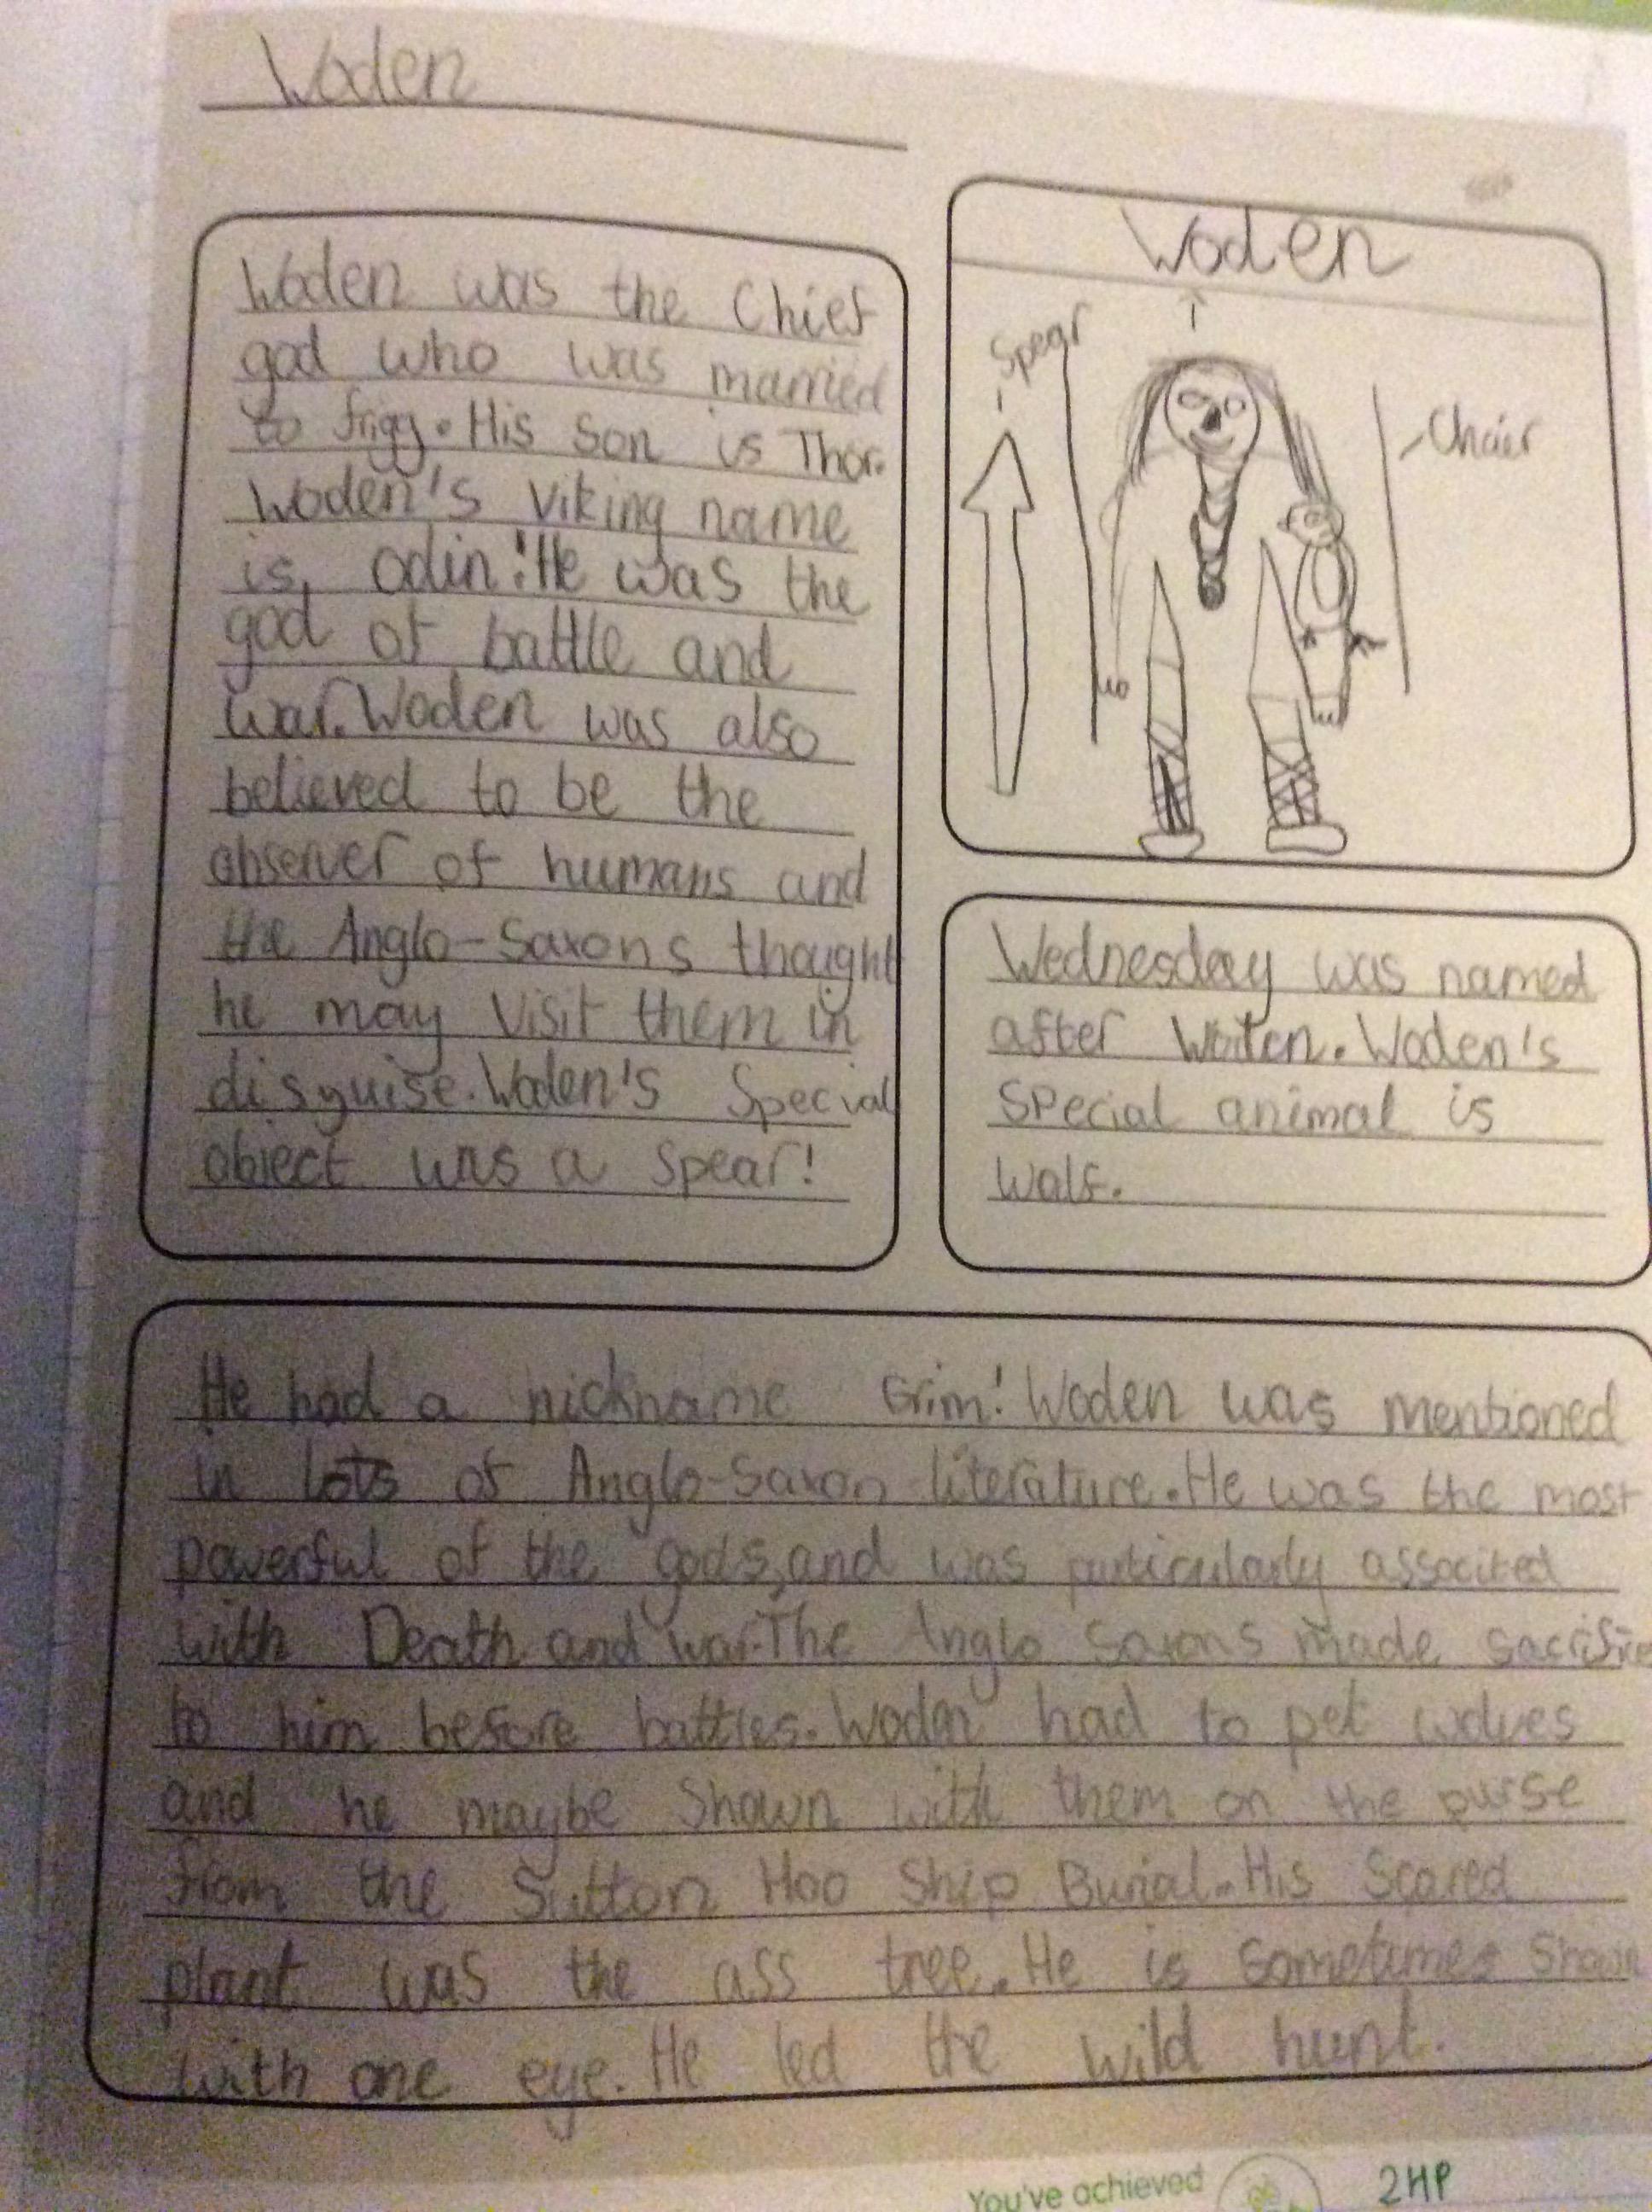 Woden
Woden was the Chief
god who was married
to frigg. His Son is Thor.
Woden's Viking name
is, odin! He was the
god of battle and
war. Woden was also
believed to be the
observer of humans and
the Anglo-Saxons thought
he may visit them in
disguise. Woden's Special
object was a spear!
Woden
Spear
Chair
Wednesday was named
after Woden. Woden's
special animal is
wolf.
He had a nickname Grim! Woden was mentioned
in lots of Anglo-Saxon literature. He was the most
powerful of the gods, and was particularly associted
with Death and war. The Anglo Saxons made sacrifice
to him before battles. Woden had to pet wolves
and he maybe Shown with them on the purse
from the Sutton Hoo Ship Burial. His Scared
plant was the ass tree. He is sometimes Shown
with one eye. He led the wild hunt.
You've achieved
2HP